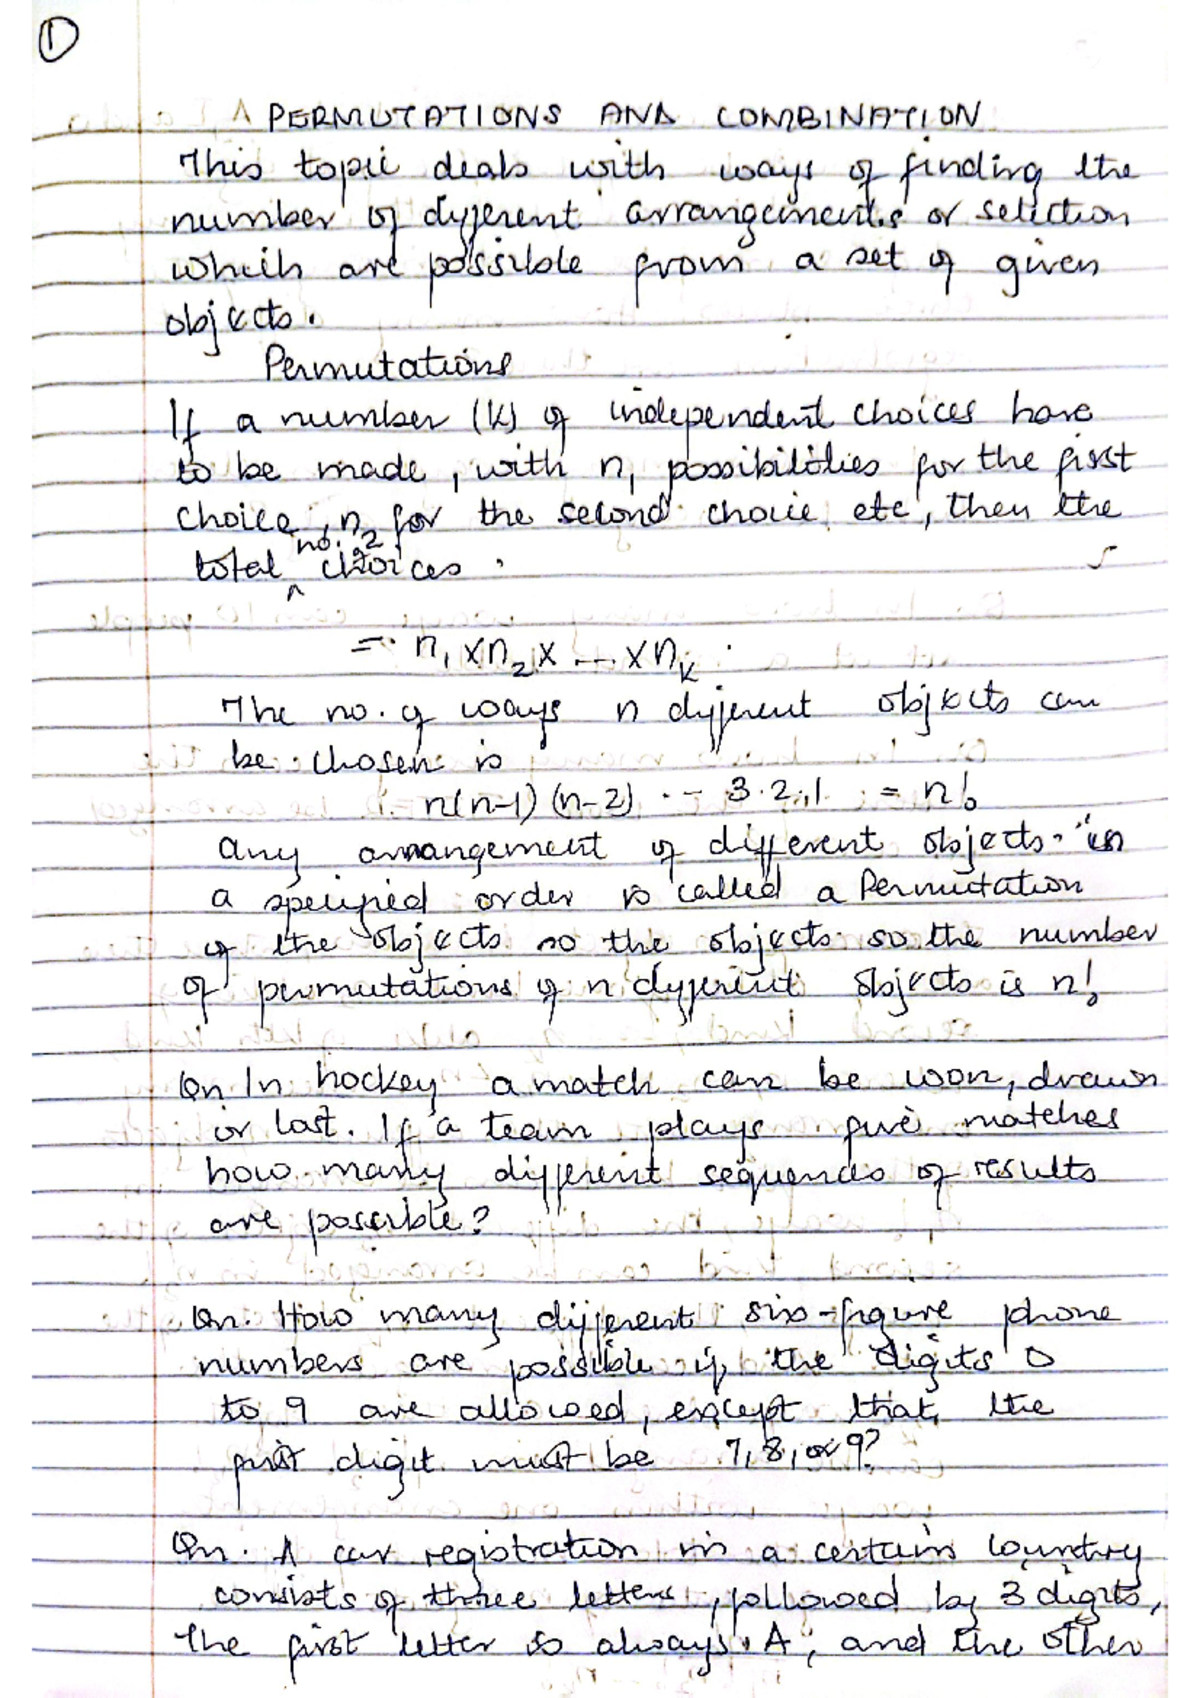 1
PERMUTATIONS AND COMBINATION
This topic deals with ways of finding the
number of different arrangements or selection
which are possible from a set of given
objects.
Permutations
If a number (k) of independent choices have
to be made, with n₁ possibilities for the first
choice, n₂ for the second choice etc, then the
total no. choices
= n₁ x n₂ x --- x nₖ
The no. of ways n different objects can
be chosen is
n(n-1)(n-2) . - - 3.2.1 = n!
any arrangement of different objects in
a specified order is called a Permutation
of the objects so the objects so the number
of permutations of n different objects is n!
Qn In hockey a match can be won, drawn
or lost. If a team plays five matches
how many different sequences of results
are possible?
Qn. How many different six-figure phone
numbers are possible if the digits 0
to 9 are allowed, except that the
first digit must be 7, 8, or 9?
Qn. A car registration in a certain country
consists of three letters, followed by 3 digits,
The first letter is always A, and the other